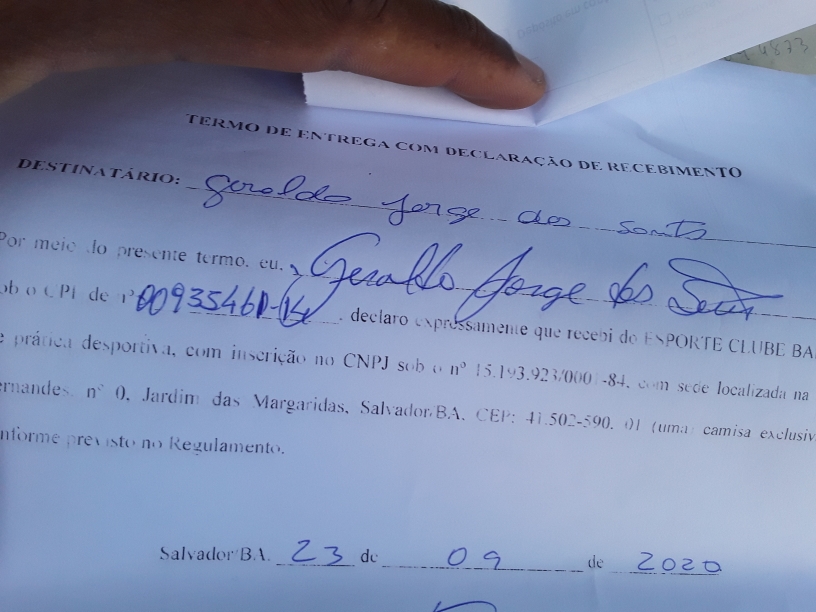 4873
TERMO DE ENTREGA COM DECLARAÇÃO DE RECEBIMENTO
DESTINATÁRIO: Geraldo Jorge dos Santos
Por meio do presente termo, eu, Geraldo Jorge dos
ob o CPF de nº , declaro expressamente que recebi do ESPORTE CLUBE BA
e prática desportiva, com inscrição no CNPJ sob o nº 15.193.923/0001-84, com sede localizada na
ernandes, nº 0, Jardim das Margaridas, Salvador/BA, CEP: 41.502-590, 01 (uma) camisa exclusiv
onforme previsto no Regulamento.
Salvador/BA, 23 de 09 de 2020